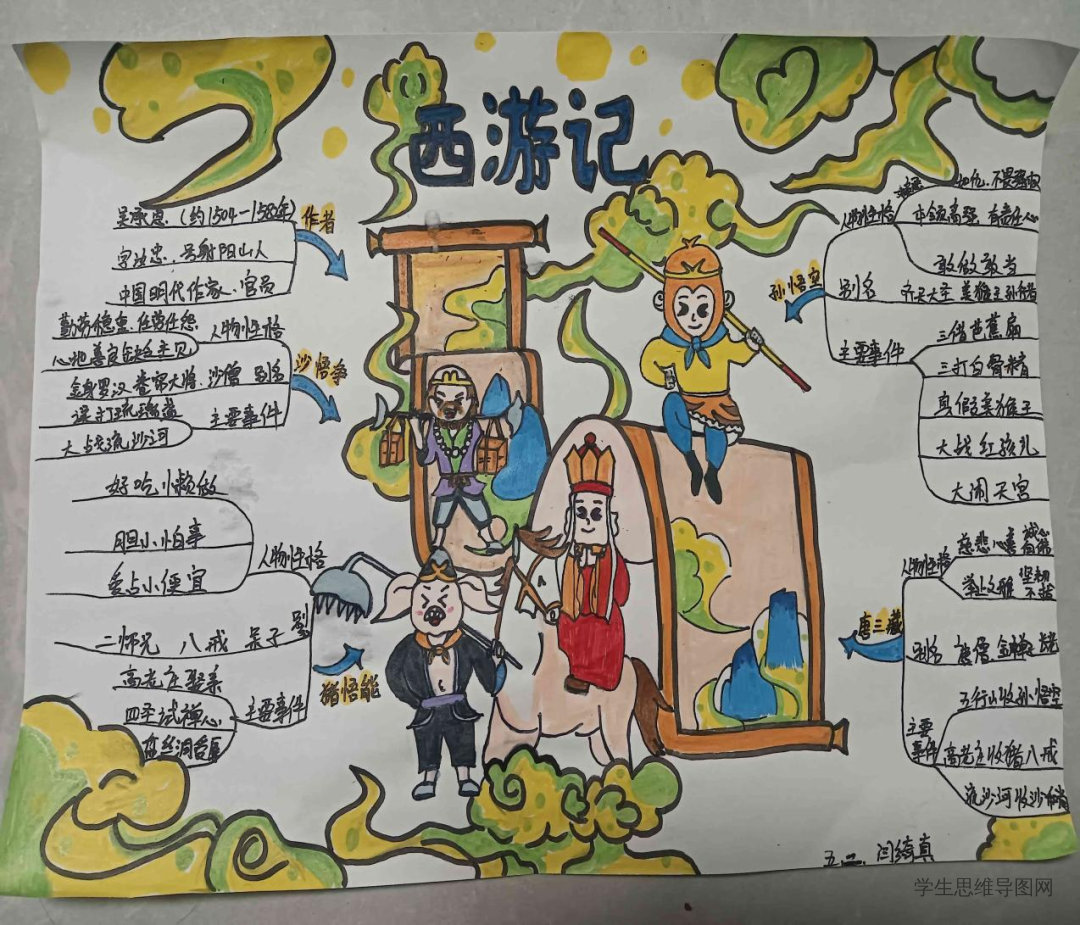 西游记
作者
吴承恩（约1504—1582年）
字汝忠，号射阳山人
中国明代作家、官员
沙悟净
人物性格
勤劳稳重、任劳任怨
心地善良缺乏主见
别名
金身罗汉 卷帘大将、沙僧
主要事件
误打琉璃盏
大战流沙河
猪悟能
人物性格
好吃懒做
胆小怕事
爱占小便宜
别名
二师兄 八戒 呆子
主要事件
高老庄娶亲
四圣试禅心
盘丝洞
孙悟空
人物性格
不畏强权
本领高强 有责任心
敢做敢当
别名
齐天大圣 美猴王 孙行者
主要事件
三借芭蕉扇
三打白骨精
真假美猴王
大战红孩儿
大闹天宫
唐三藏
人物性格
慈悲心善 诚心
坚韧
不拔
别名
唐僧、金蝉子
主要事件
五行山收孙悟空
高老庄收猪八戒
流沙河收沙
五.二.闫绮真
学生思维导图网